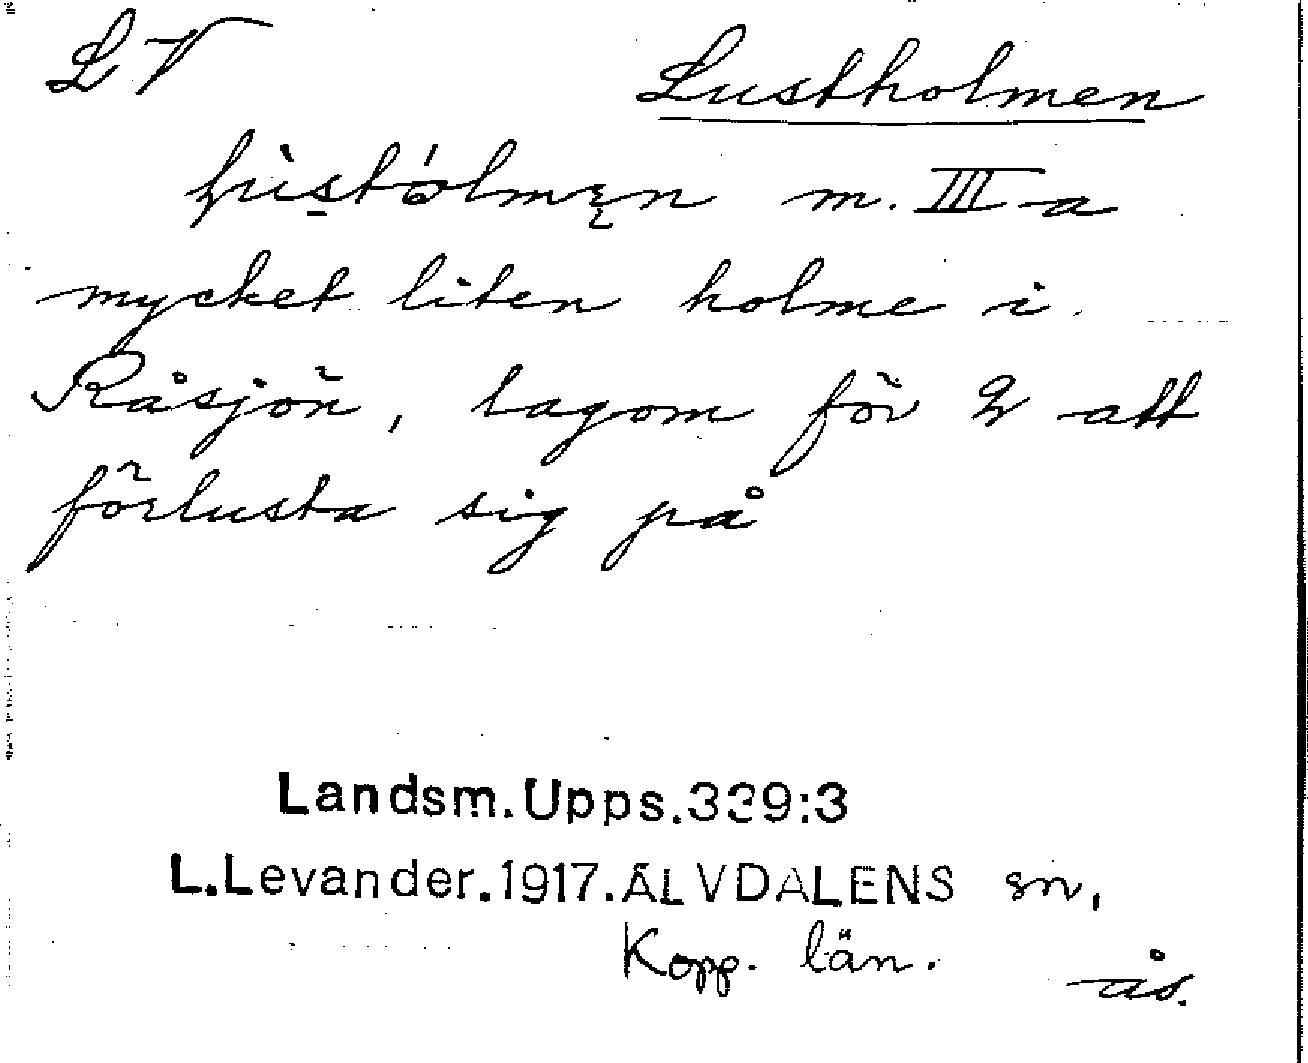 LV
Lustholmen
m. III a
mycket liten holme i
Råsjön, lagom för 2 att
förlusta sig på
Landsm.Upps.339:3
L.Levander.1917.ÄLVDALENS sn,
Kopp. län.
ås.